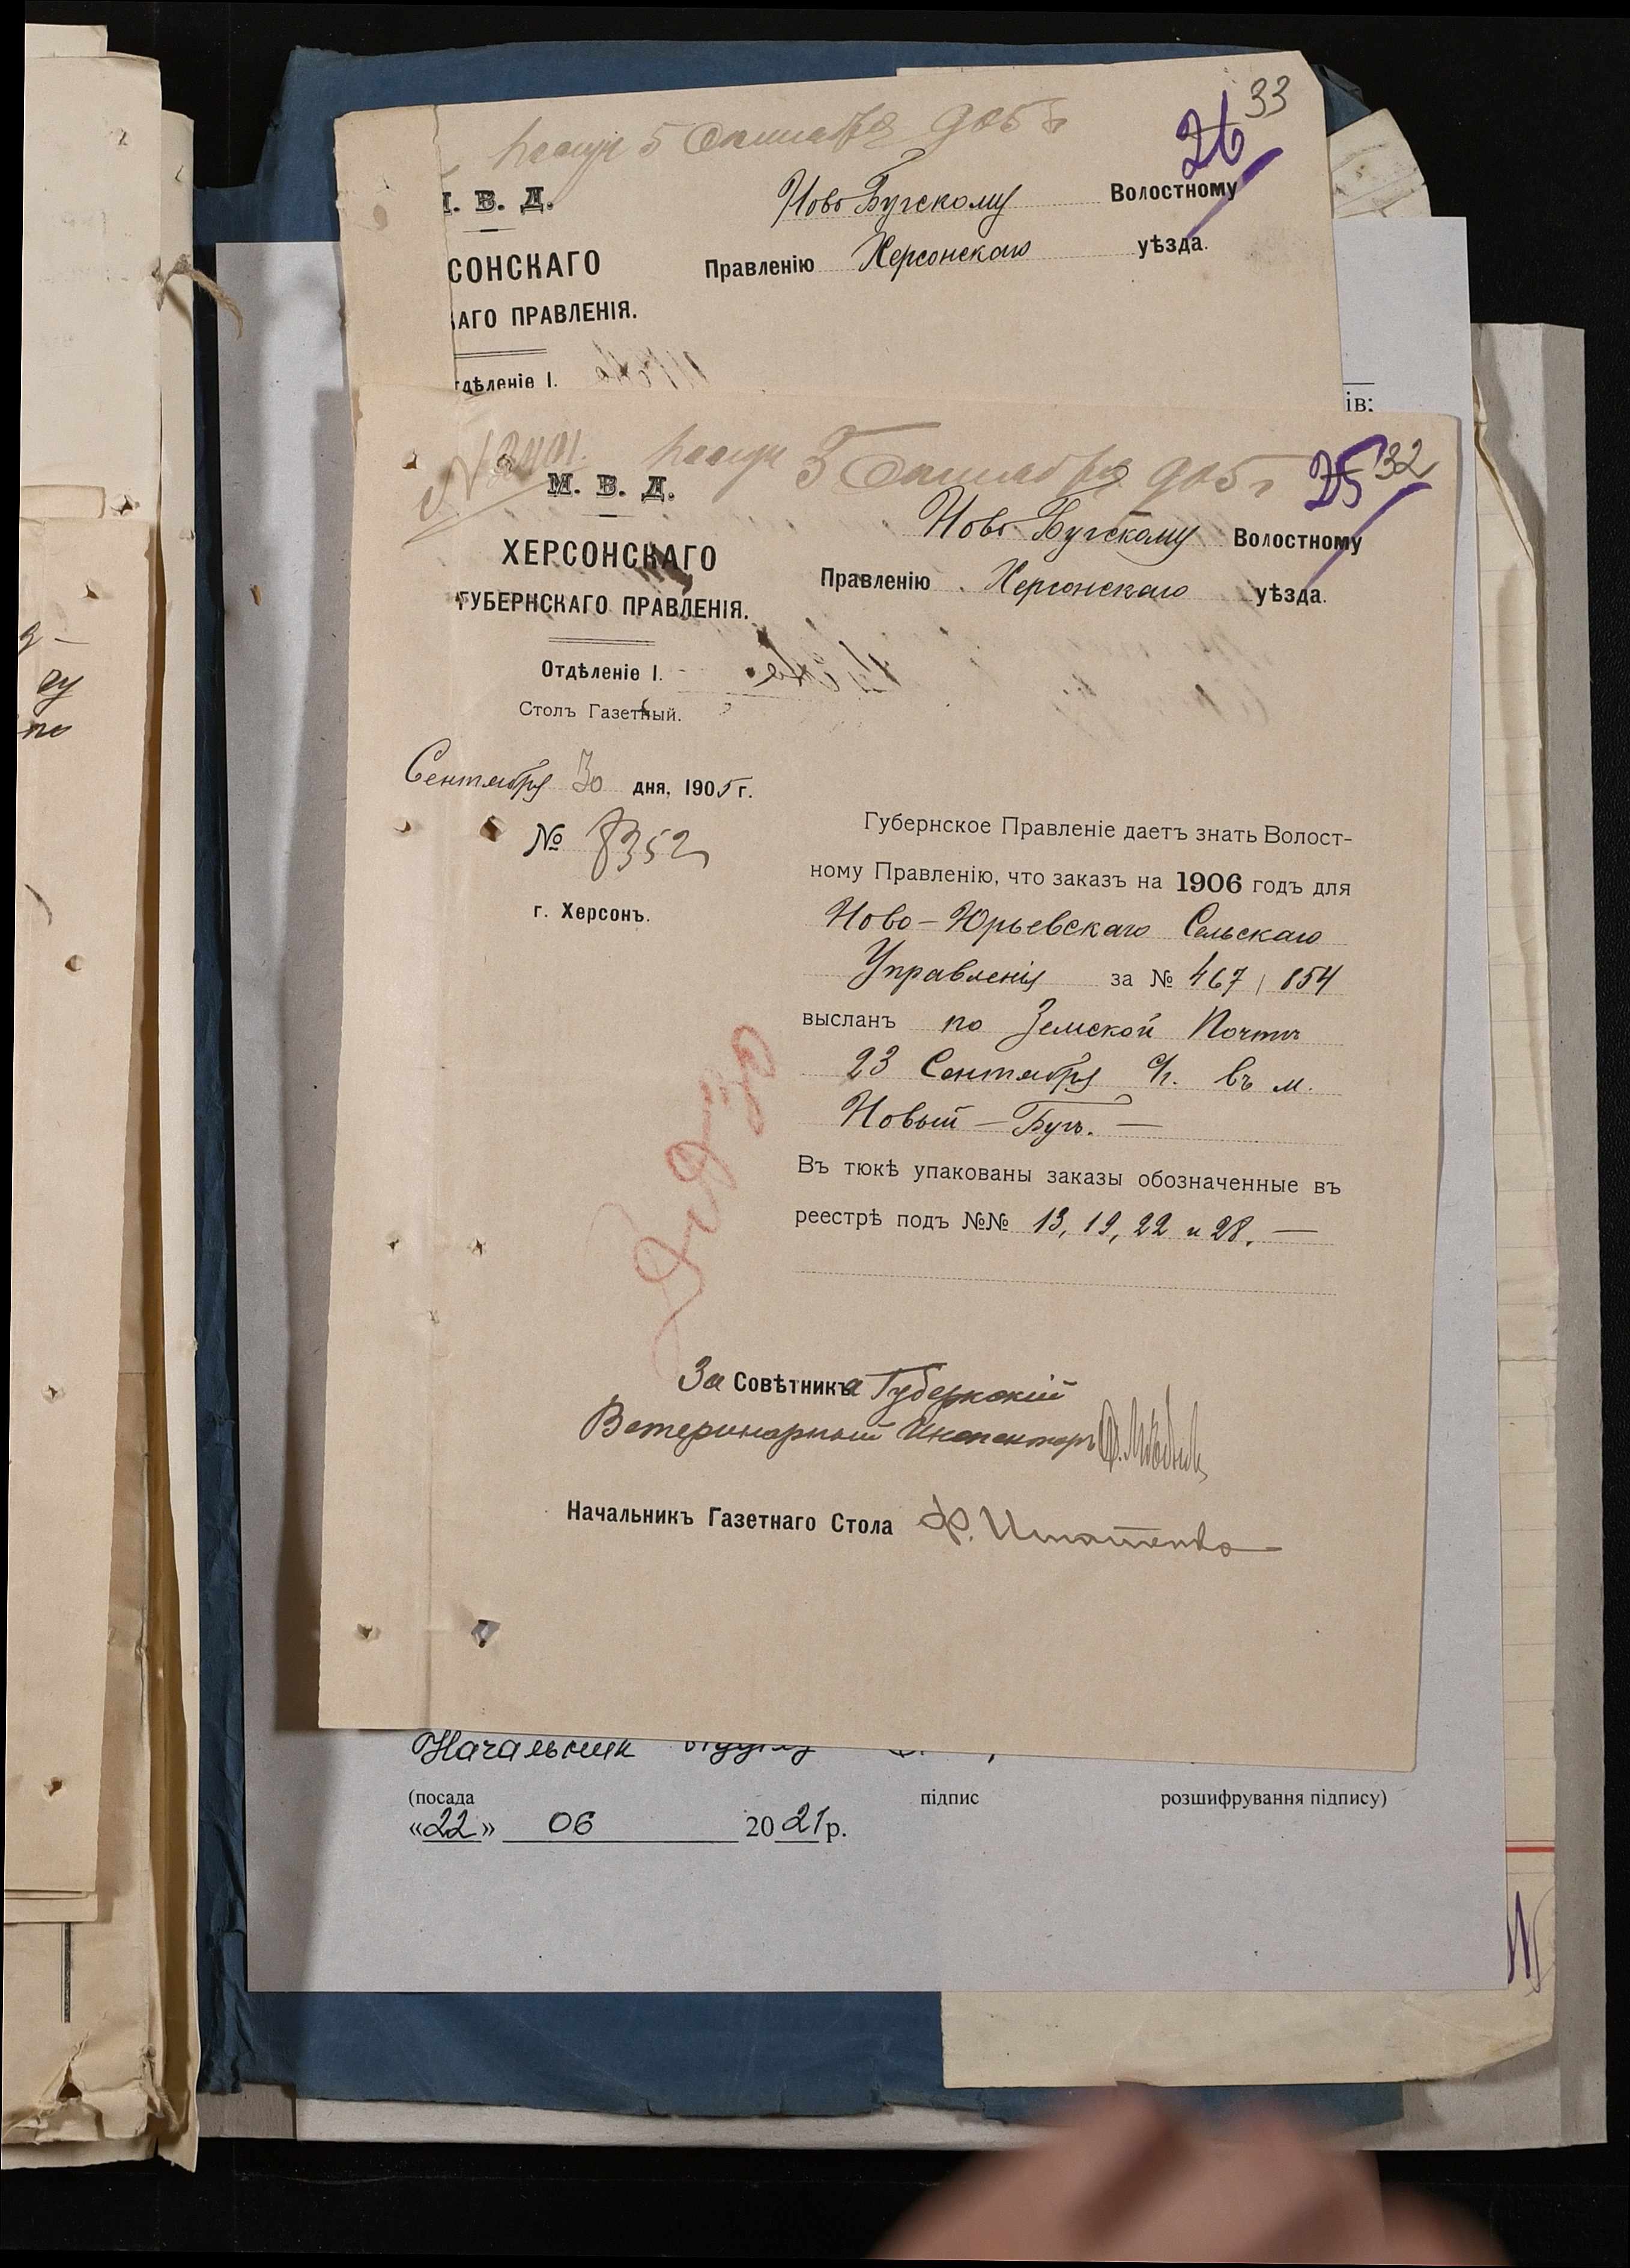 33
26
5 Октября 905 г
М. В. Д.
Ново Бугскому Волостному
СОНСКАГО
Правленію Херсонскаго уѣзда.
АГО ПРАВЛЕНІЯ.
тдѣленіе I.
ів;
5 Октября 905 г
25 32
М. В. Д.
Ново-Бугскому Волостному
ХЕРСОНСКАГО
Правленію Херсонскаго уѣзда.
ГУБЕРНСКАГО ПРАВЛЕНІЯ.
Отдѣленіе I.
Столъ Газетный.
Сентября 30 дня, 1905 г.
№ 8352
г. Херсонъ.
Губернское Правленіе даетъ знать Волост-
ному Правленію, что заказъ на 1906 годъ для
Ново-Юрьевскаго Сельскаго
Управленія за № 467/854
высланъ по Земской Почтѣ
23 Сентября с/г. въ м.
Новый-Бугъ. —
Въ тюкѣ упакованы заказы обозначенные въ
реестрѣ подъ №№ 13, 19, 22 и 28. —
За Совѣтника Губернскій
Ветеринарный Инспекторъ
Начальникъ Газетнаго Стола Ф. Игнатенко
Начальник відділу
(посада підпис розшифрування підпису)
«22» 06 2021 р.